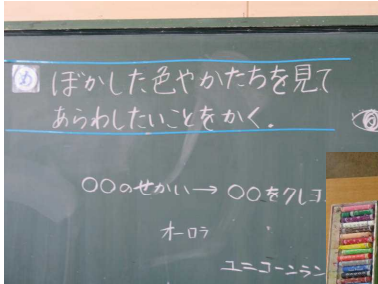 め ぼかした色やかたちを見て
あらわしたいことをかく。
○○のせかい→ ○○をクレヨ
オーロラ
ユニコーンラン